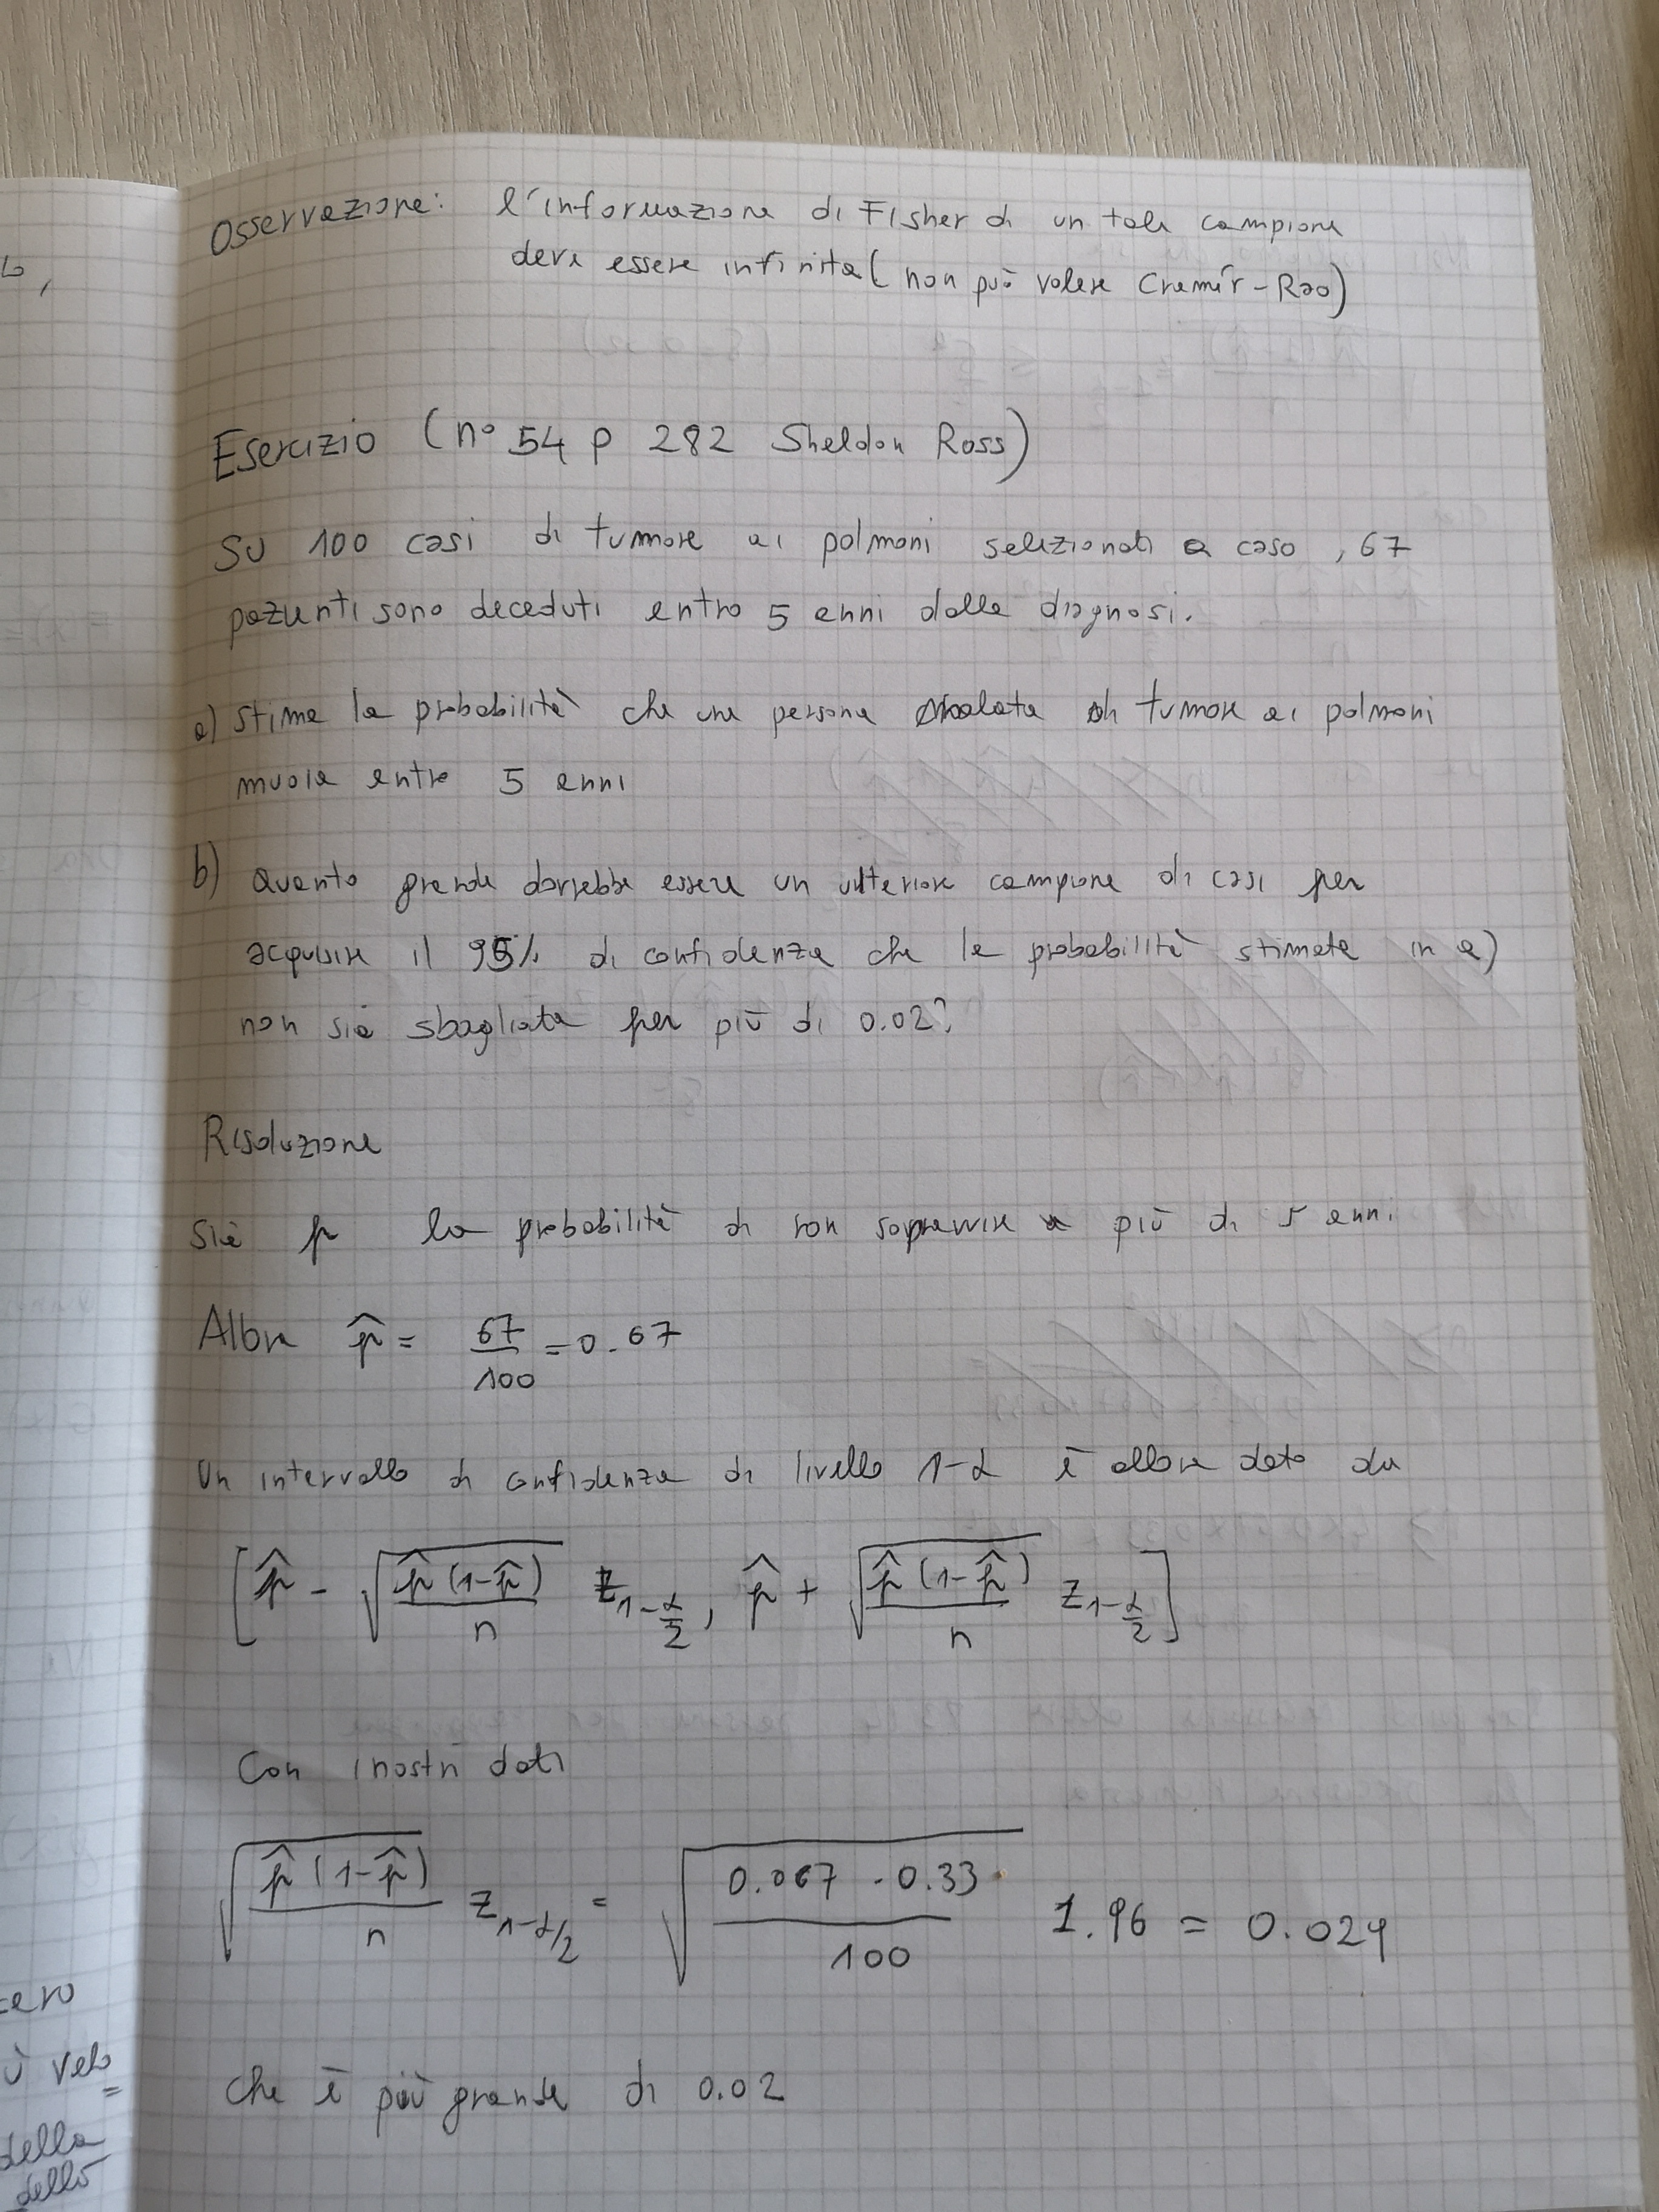 Osservazione: l'informazione di Fisher di un tale campione
deve essere infinita (non può valere Cramér-Rao)
Esercizio (n° 54 p 282 Sheldon Ross)
Su 100 casi di tumore ai polmoni selezionati a caso, 67
pazienti sono deceduti entro 5 anni dalla diagnosi.
a) stima la probabilità che una persona malata di tumore ai polmoni
muoia entro 5 anni
b) Quanto grande dovrebbe essere un ulteriore campione di casi per
acquisire il 95% di confidenza che la probabilità stimata in a)
non sia sbagliata per più di 0.02?
Risoluzione
Sia p la probabilità di non sopravvivere a più di 5 anni
Allora p̂ = 67/100 = 0.67
Un intervallo di confidenza di livello 1-α è allora dato da
[p̂ - √(p̂(1-p̂)/n) z_{1-α/2}, p̂ + √(p̂(1-p̂)/n) z_{1-α/2}]
Con i nostri dati
√(p̂(1-p̂)/n) z_{1-α/2} = √(0.067 · 0.33/100) 1.96 = 0.029
che è più grande di 0.02
cero
ù velo
della
dello